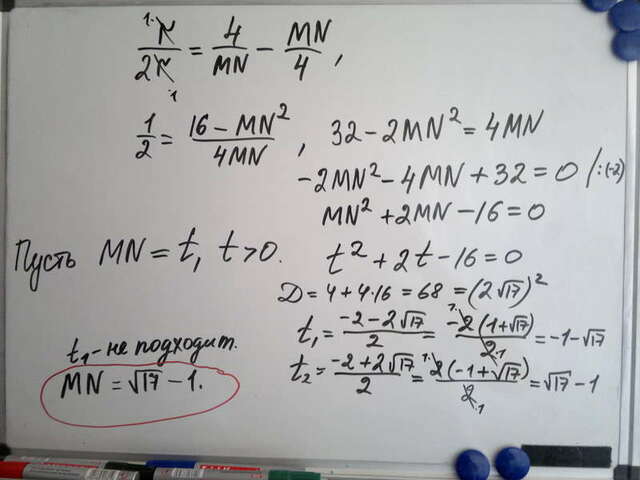 1. k / 2k 1 = 4/MN - MN/4,
1/2 = (16 - MN²)/4MN, 32 - 2MN² = 4MN
-2MN² - 4MN + 32 = 0 /:(-2)
MN² + 2MN - 16 = 0
Пусть MN = t, t > 0. t² + 2t - 16 = 0
D = 4 + 4·16 = 68 = (2√17)²
t₁ = (-2 - 2√17)/2 = -2(1 + √17)/2 = -1 - √17
t₁ - не подходит. t₂ = (-2 + 2√17)/2 = 2(-1 + √17)/2 = √17 - 1
MN = √17 - 1.